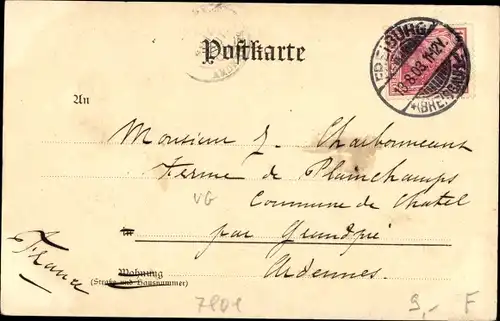 Postkarte
FREIBURG
13.8.03. 11-12V.
(BREISGAU)
An
Monsieur J. Charbonneaux
Ferme de Plainchamps
Commune de Chatel
VG
in par Grandpré
Ardennes.
France
Wohnung
(Straße und Hausnummer)
7801
9,- F